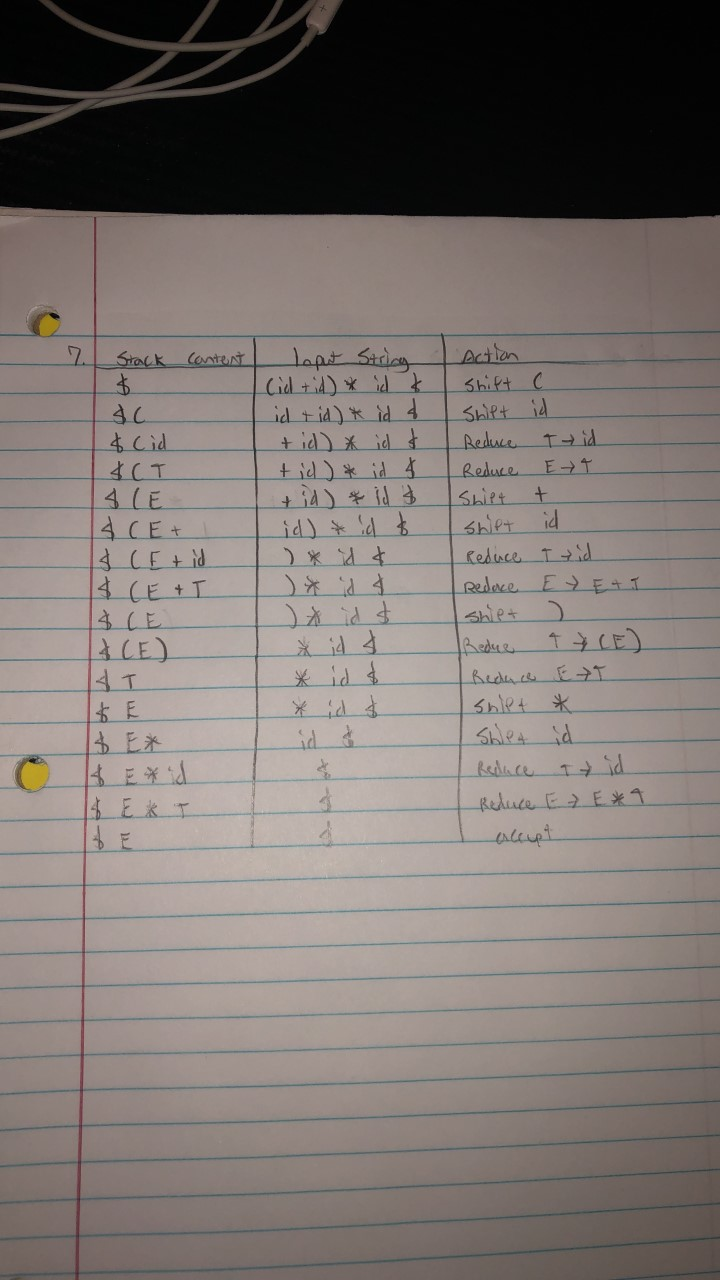 7. Stack Content Input String Action
$ (id + id) * id $ Shift (
$ ( id + id) * id $ Shift id
$ ( id + id) * id $ Reduce T → id
$ ( T + id) * id $ Reduce E → T
$ ( E + id) * id $ Shift +
$ ( E + id) * id $ Shift id
$ ( E + id ) * id $ Reduce T → id
$ ( E + T ) * id $ Reduce E → E + T
$ ( E ) * id $ Shift )
$ (E) * id $ Reduce T → (E)
$ T * id $ Reduce E → T
$ E * id $ Shift *
$ E * id $ Shift id
$ E * id $ Reduce T → id
$ E * T $ Reduce E → E * T
$ E $ accept